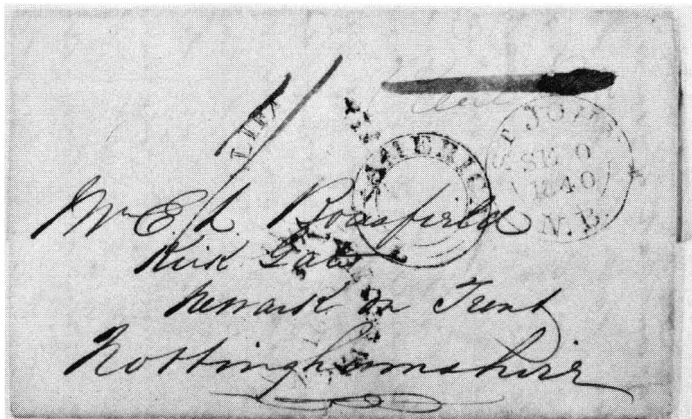 ST JOHN
SE 0
1840
N.B.
AMERIC
LIFA
Mr E. L. Bousfield
Kirk Gate
Newark on Trent
Nottinghamshire